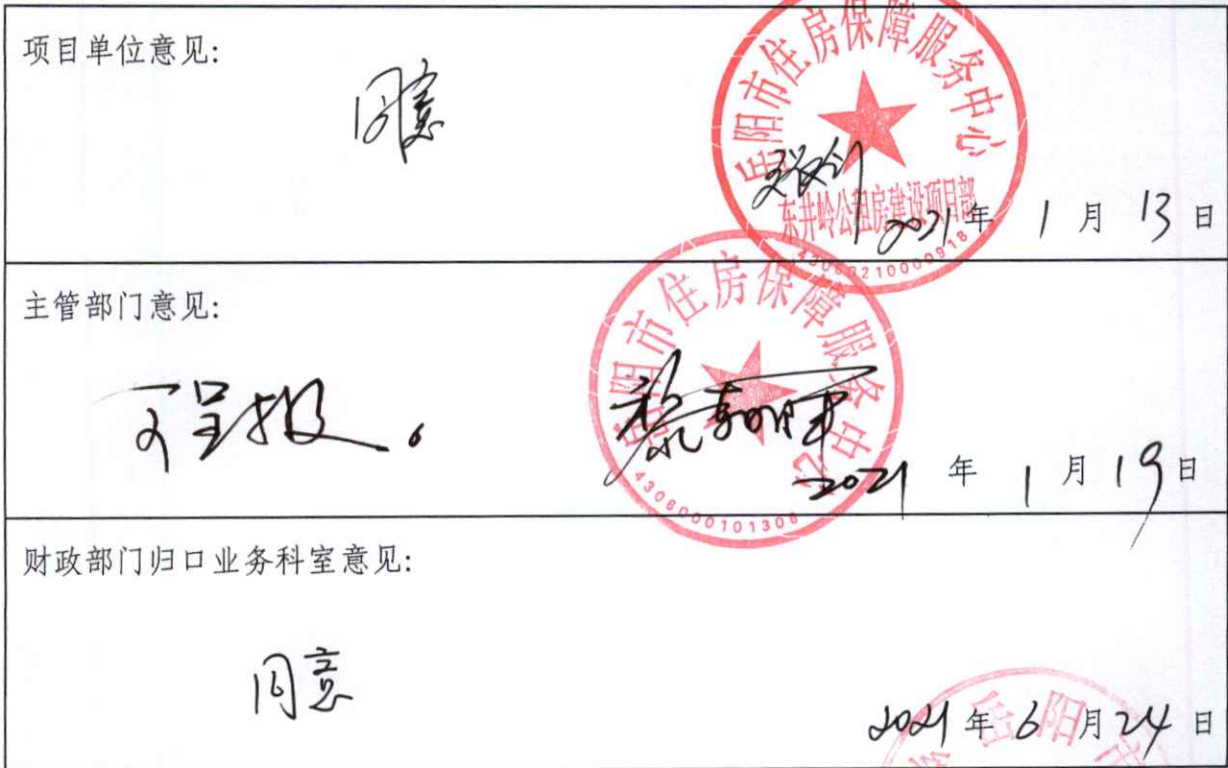 项目单位意见:
同意
岳阳市住房保障服务中心
东井岭公租房建设项目部
2021年 1 月 13 日
主管部门意见:
可呈报。
岳阳市住房保障服务中心
4306000101308
2021 年 1 月 19 日
财政部门归口业务科室意见:
同意
2021 年 6 月 24 日
岳阳市